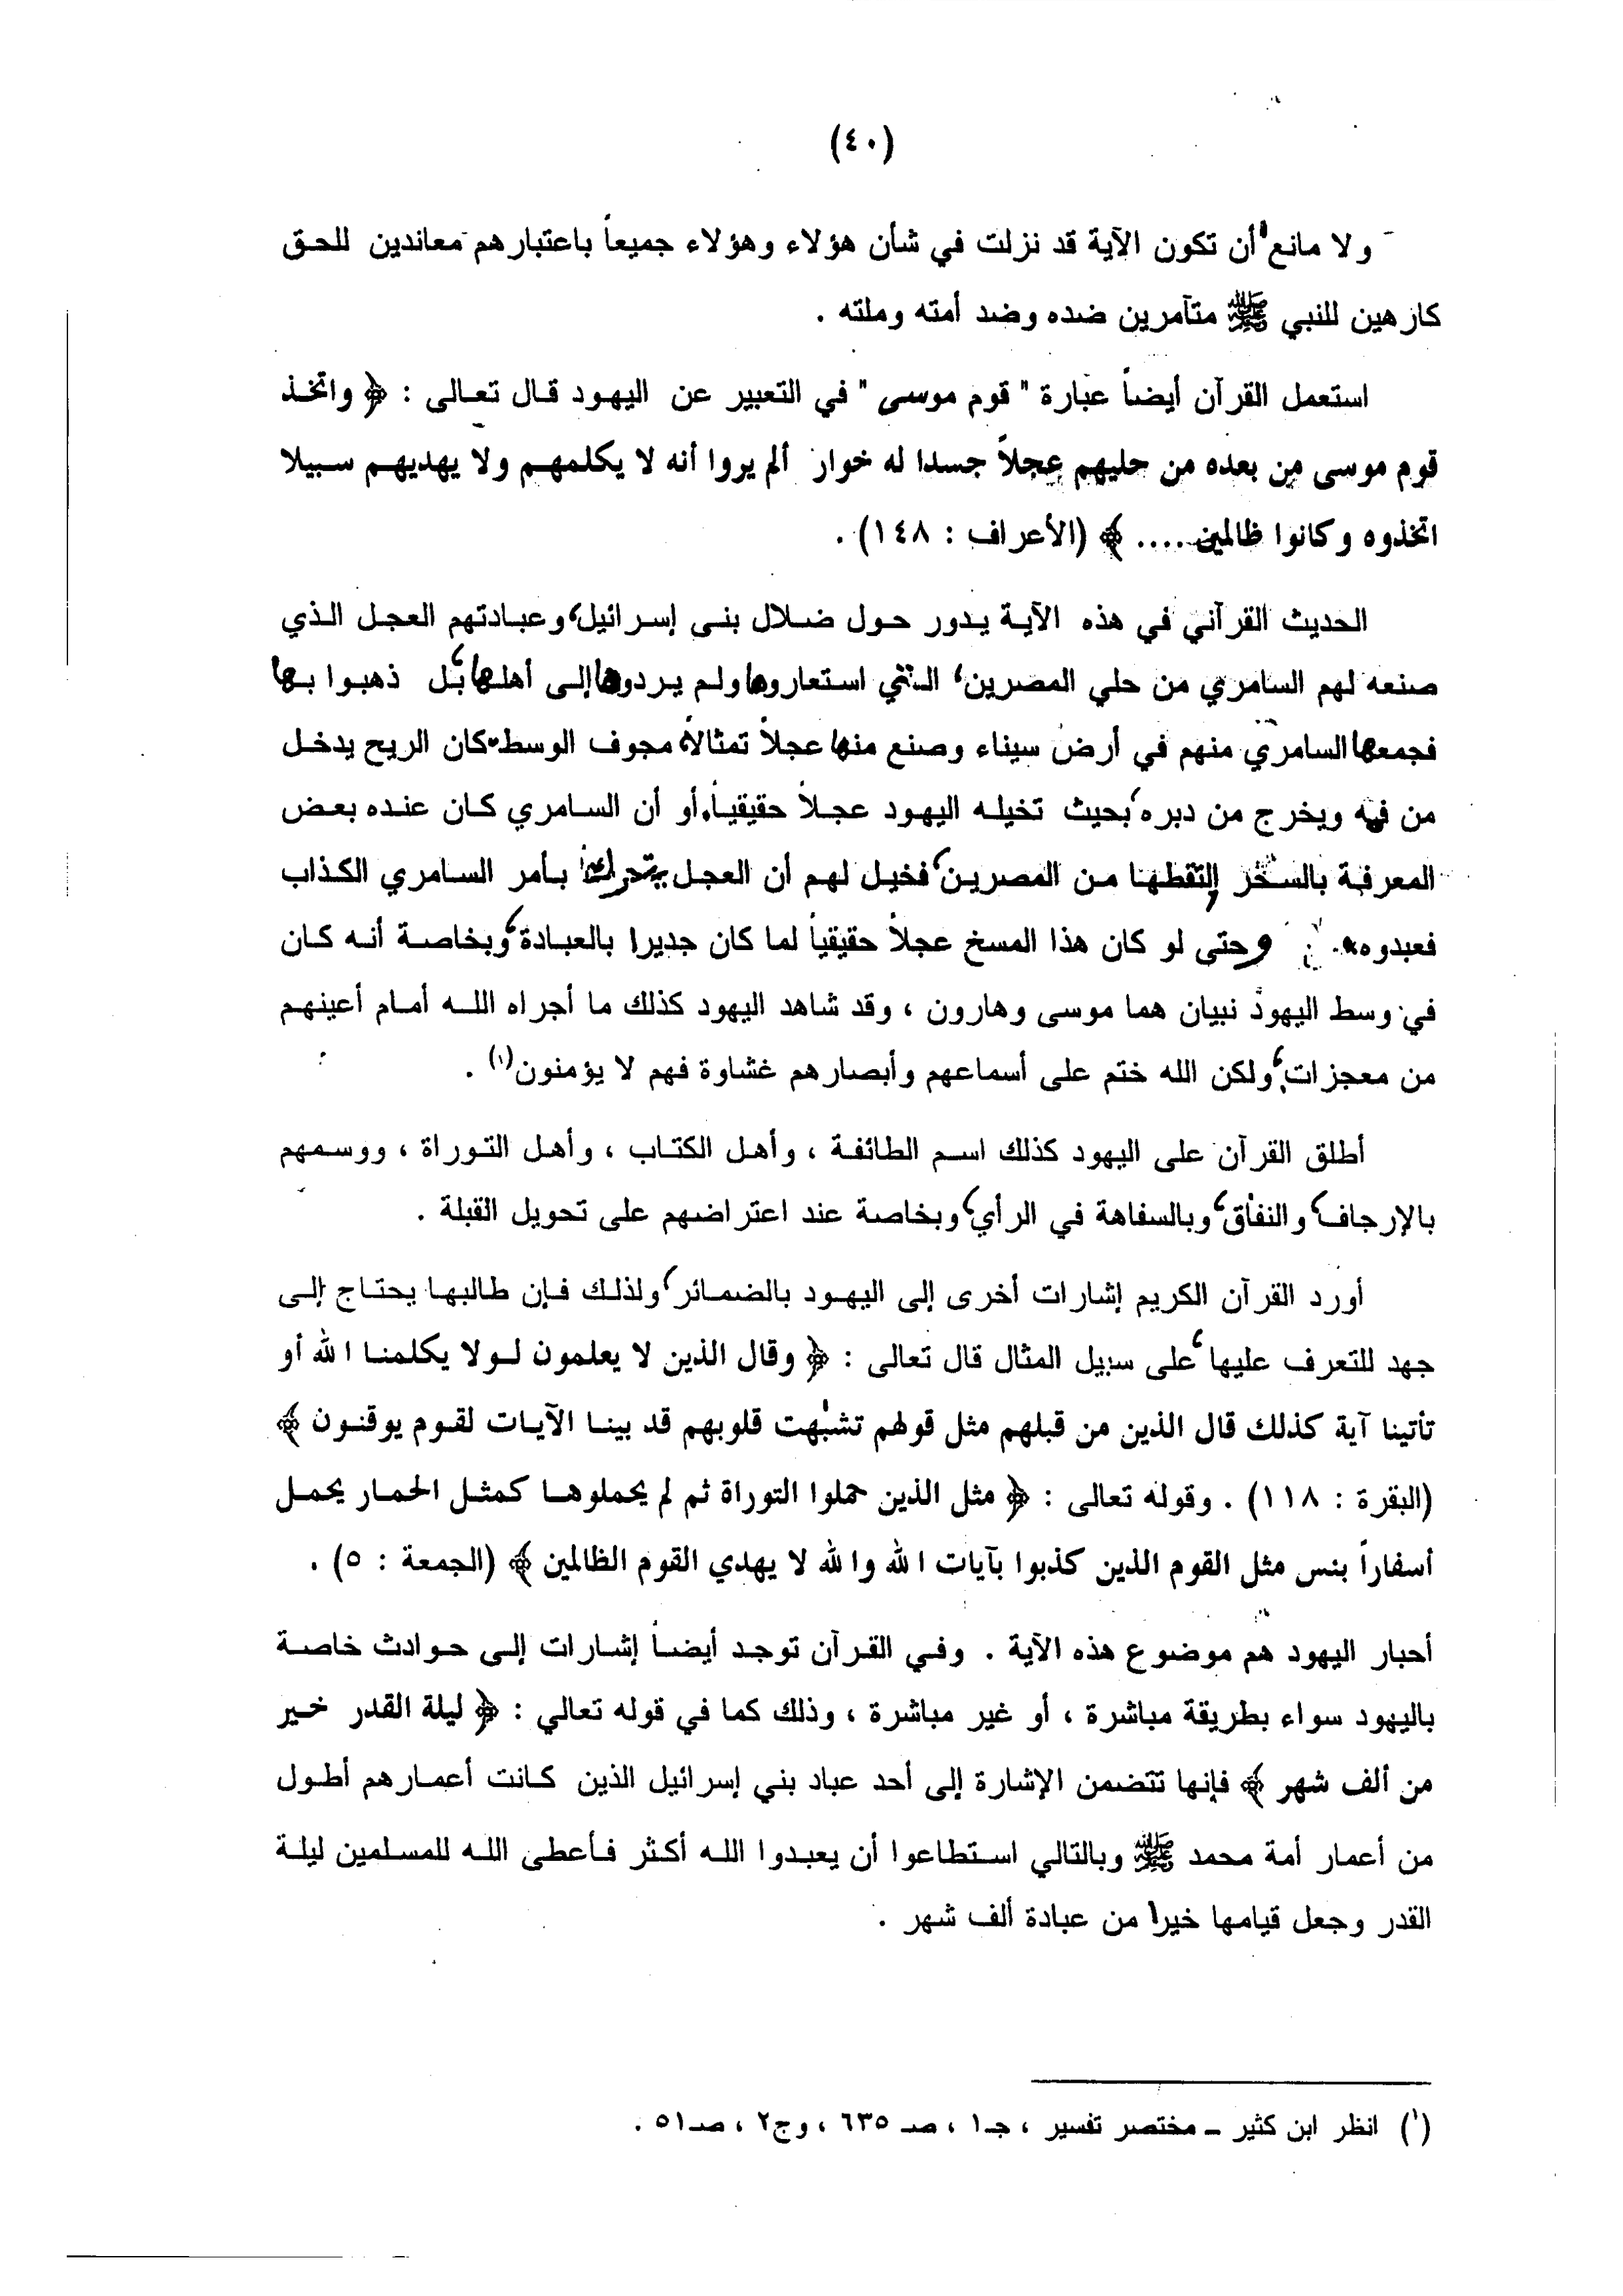 (٤٠)
ولا مانع أن تكون الآية قد نزلت في شأن هؤلاء وهؤلاء جميعاً باعتبارهم معاندين للحق
كارهين للنبي ﷺ متآمرين ضده وضد أمته وملته .
استعمل القرآن أيضاً عبارة " قوم موسى " في التعبير عن اليهود قال تعالى : ﴿ واتخذ
قوم موسى من بعده من حليهم عجلاً جسدا له خوار ألم يروا أنه لا يكلمهم ولا يهديهم سبيلا
اتخذوه وكانوا ظالمين .... ﴾ (الأعراف : ١٤٨) .
الحديث القرآني في هذه الآية يدور حول ضلال بنى إسرائيل، وعبادتهم العجل الذي
صنعه لهم السامري من حلي المصرين، التي استعاروها ولم يردوها إلى أهلها، بل ذهبوا بها
فجمعها السامري منهم في أرض سيناء وصنع منها عجلاً تمثالاً مجوف الوسط كان الريح يدخل
من فيه ويخرج من دبره، بحيث تخيله اليهود عجلاً حقيقياً، أو أن السامري كان عنده بعض
المعرفة بالسحر التقطها من المصرين، فخيل لهم أن العجل يتحرك بأمر السامري الكذاب
فعبدوه. وحتى لو كان هذا المسخ عجلاً حقيقياً لما كان جديرا بالعبادة، وبخاصة أنه كان
في وسط اليهود نبيان هما موسى وهارون ، وقد شاهد اليهود كذلك ما أجراه الله أمام أعينهم
من معجزات، ولكن الله ختم على أسماعهم وأبصارهم غشاوة فهم لا يؤمنون(١) .
أطلق القرآن على اليهود كذلك اسم الطائفة ، وأهل الكتاب ، وأهل التوراة ، ووسمهم
بالإرجاف، والنفاق، وبالسفاهة في الرأي، وبخاصة عند اعتراضهم على تحويل القبلة .
أورد القرآن الكريم إشارات أخرى إلى اليهود بالضمائر، ولذلك فإن طالبها يحتاج إلى
جهد للتعرف عليها، على سبيل المثال قال تعالى : ﴿ وقال الذين لا يعلمون لولا يكلمنا الله أو
تأتينا آية كذلك قال الذين من قبلهم مثل قولهم تشبهت قلوبهم قد بينا الآيات لقوم يوقنون ﴾
(البقرة : ١١٨) . وقوله تعالى : ﴿ مثل الذين حملوا التوراة ثم لم يحملوها كمثل الحمار يحمل
أسفاراً بئس مثل القوم الذين كذبوا بآيات الله والله لا يهدي القوم الظالمين ﴾ (الجمعة : ٥) .
أحبار اليهود هم موضوع هذه الآية . وفي القرآن توجد أيضاً إشارات إلى حوادث خاصة
باليهود سواء بطريقة مباشرة ، أو غير مباشرة ، وذلك كما في قوله تعالي : ﴿ ليلة القدر خير
من ألف شهر ﴾ فإنها تتضمن الإشارة إلى أحد عباد بني إسرائيل الذين كانت أعمارهم أطول
من أعمار أمة محمد ﷺ وبالتالي استطاعوا أن يعبدوا الله أكثر فأعطى الله للمسلمين ليلة
القدر وجعل قيامها خيرا من عبادة ألف شهر .
(١) انظر ابن كثير – مختصر تفسير ، جـ١ ، صـ ٦٣٥ ، وج٢ ، صـ٥١ .